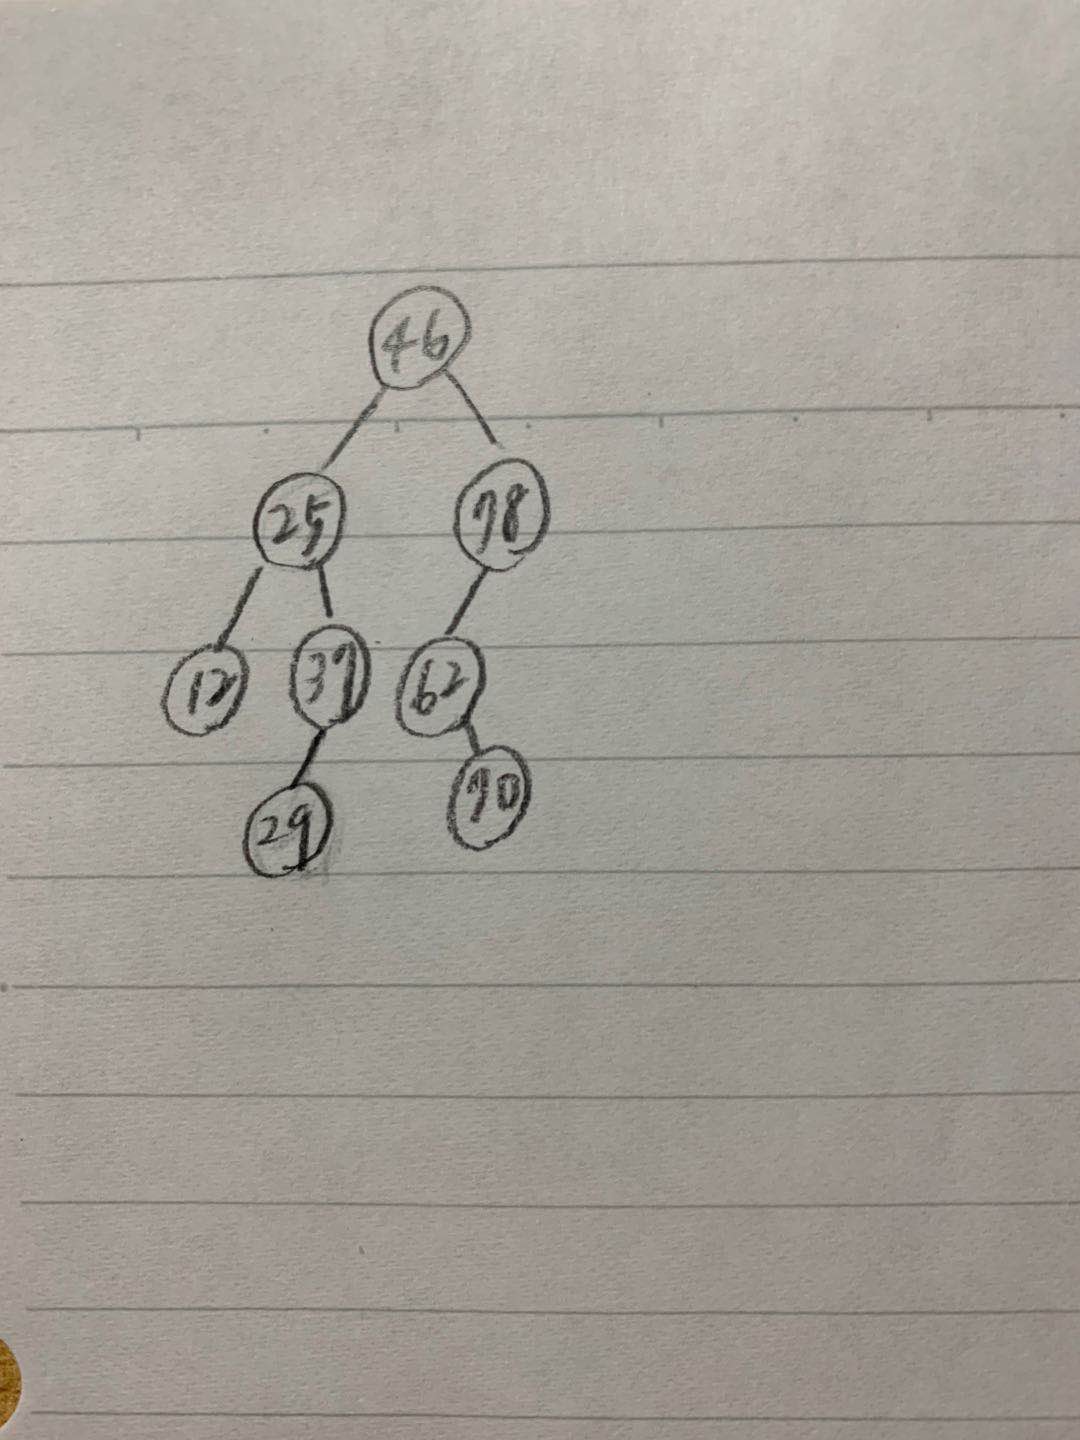 46
25 78
12 37 62
29 70